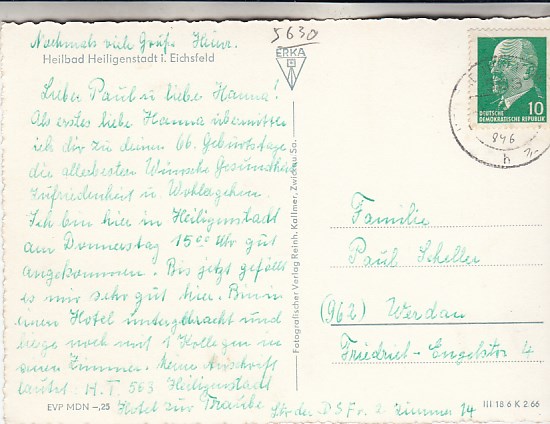 Nochmals viele Grüße Heinr.
Heilbad Heiligenstadt i. Eichsfeld
Lieber Paul u liebe Hanna!
Als erstes liebe Hanna übermittere
ich dir zu deinen 66. Geburtstage
die allerbesten Wünsche Gesundheit
Zufriedenheit u Wohlergehen.
Ich bin hier in Heiligenstadt
am Donnerstag 15⁰⁰ Uhr gut
angekommen. Bis jetzt gefällt
es mir sehr gut hier. Bin in
einen Hotel untergebracht und
liege noch mit 1 Kollegen in
einen Zimmer. Meine Anschrift
lautet: H. T. 563 Heiligenstadt
Hotel zur Traube
Str der DSF r. 2 Zimmer 14
EVP MDN –,25
5630
ERKA
Fotografischer Verlag Reinh. Kallmer, Zwickau Sa.
DEUTSCHE
DEMOKRATISCHE REPUBLIK
10
946
Familie
Paul Scheller
(962) Werdau
Friedrich-Engelstr 4
III 18 6 K 2 66